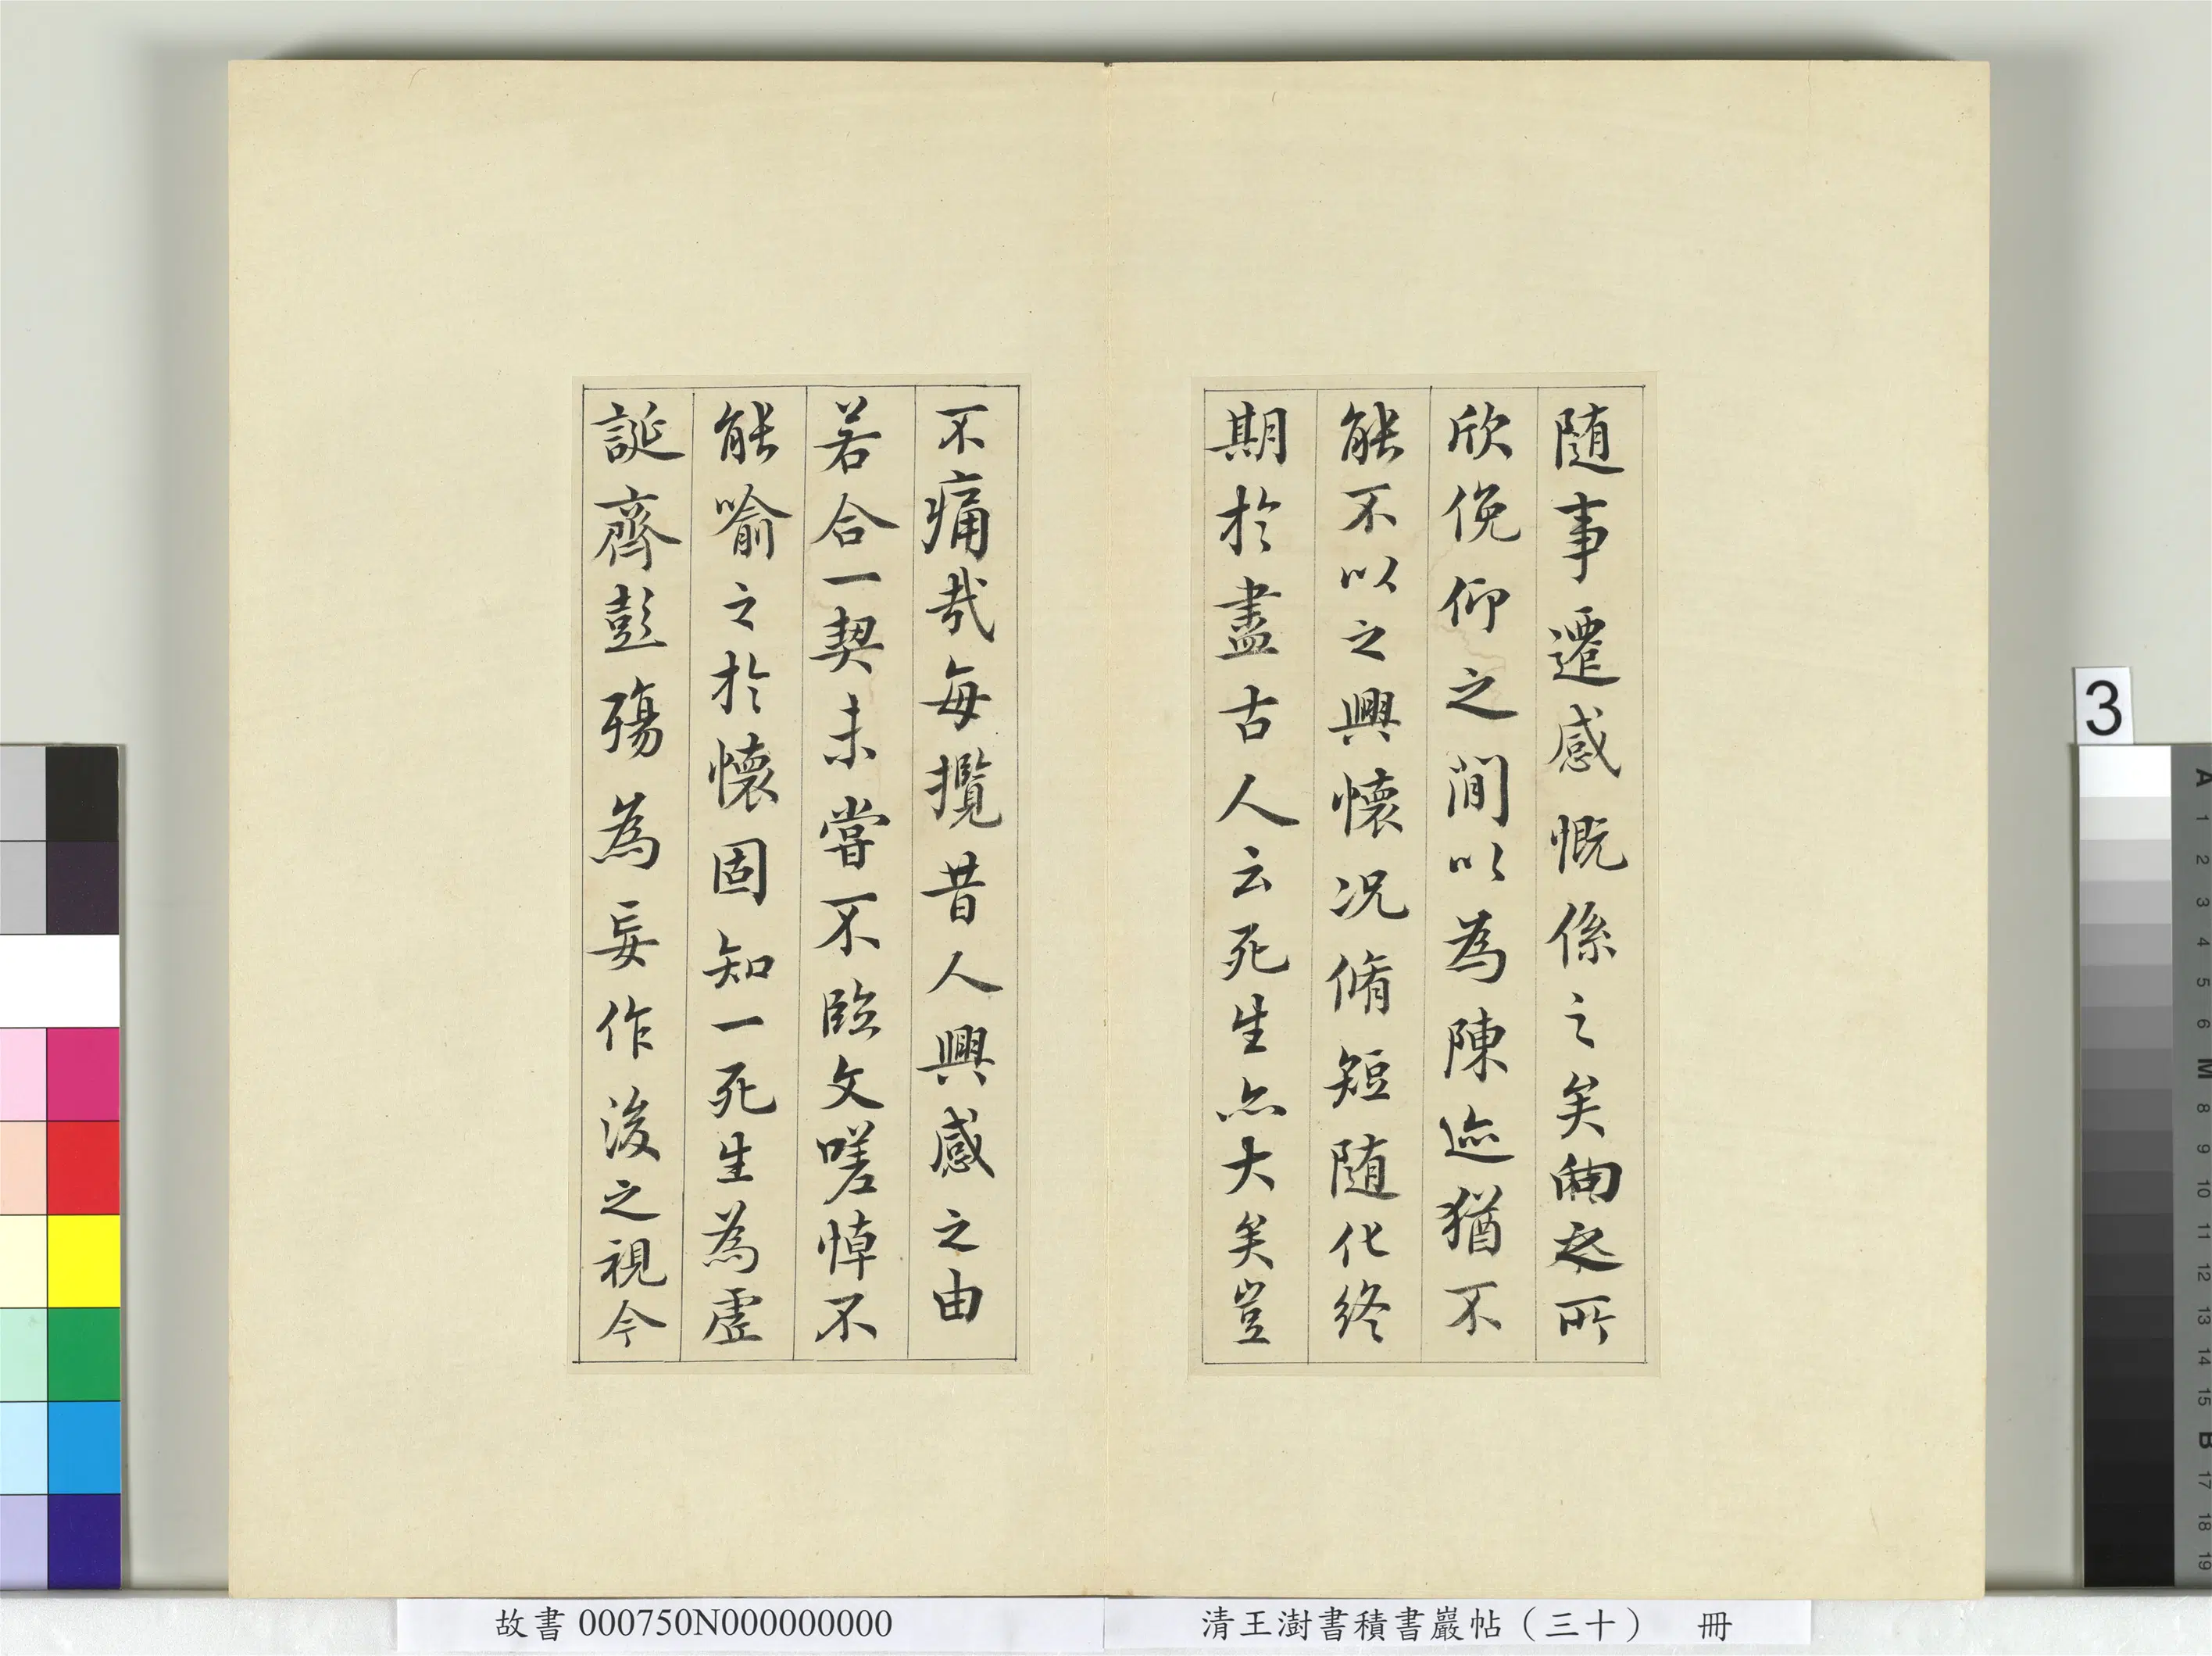 随事遷感慨係之矣向之所
欣俛仰之間以為陳迹猶不
能不以之興懷況脩短随化終
期於盡古人云死生亦大矣豈
不痛哉每攬昔人興感之由
若合一契未嘗不臨文嗟悼不
能喻之於懷固知一死生為虛
誕齊彭殤為妄作後之視今
故書 000750N000000000
清王澍書積書巖帖（三十） 冊
3
A
1
2
3
4
5
6
M
8
9
10
11
12
13
14
15
B
17
18
19